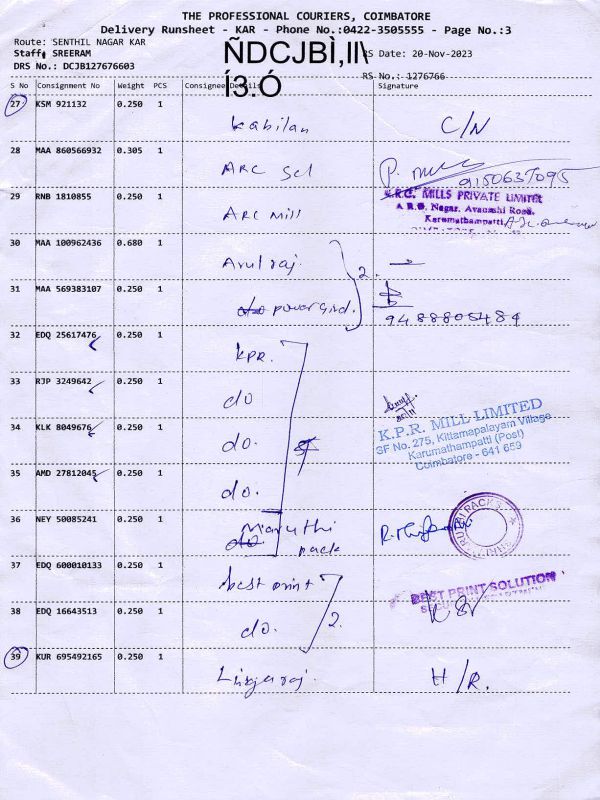 THE PROFESSIONAL COURIERS, COIMBATORE
Delivery Runsheet - KAR - Phone No.:0422-3505555 - Page No.:3
Route: SENTHIL NAGAR KAR
Staff: SREERAM
ÑDCJBÌ,II\
RS Date: 20-Nov-2023
DRS No.: DCJB127676603
Í3.Ó
RS No.: 1276766
S No Consignment No Weight PCS Consignee Details Signature
27 KSM 921132 0.250 1
Kabilan C/N
28 MAA 860566932 0.305 1
ARC Scl 9150637095
29 RNB 1810855 0.250 1
ARC Mill
K.R.C. MILLS PRIVATE LIMITED
A R.G. Nagar, Avanashi Road,
Karumathampatti
30 MAA 100962436 0.680 1
Arulraj. 2.
31 MAA 569383107 0.250 1
do power Grid. 9488805484
32 EDQ 25617476 0.250 1
KPR.
33 RJP 3249642 0.250 1
do
34 KLK 8049676 0.250 1
do.
K.P.R. MILL LIMITED
SF No. 275, Kittamapalayam Village
Karumathampatti (Post)
Coimbatore - 641 659
35 AMD 27812045 0.250 1
do.
36 NEY 50085241 0.250 1
Maruthi
do. pack
37 EDQ 600010133 0.250 1
best print
BEST PRINT SOLUTION
38 EDQ 16643513 0.250 1
do. 2.
39 KUR 695492165 0.250 1
Lingaraj. H/R.